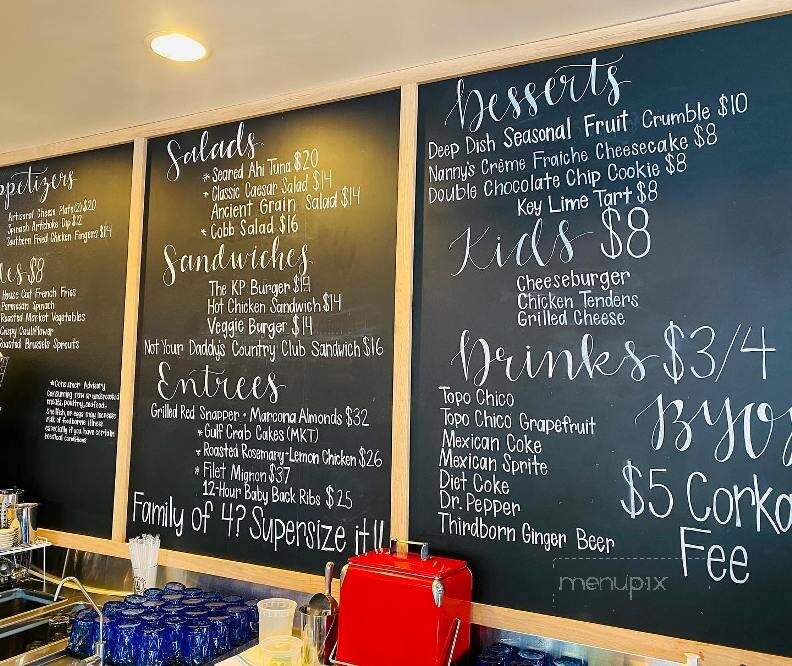 ppetizers
Artisanal Cheese Plate(2) $20
Spinach Artichoke Dip $12
Southern Fried Chicken Fingers $14
es $8
House Cut French Fries
Parmesan Spinach
Roasted Market Vegetables
Crispy Cauliflower
Roasted Brussels Sprouts
*Consumer Advisory
Consuming raw or undercooked
meats, poultry, seafood,
shellfish, or eggs may increase
risk of foodborne illness
especially if you have certain
medical conditions
Salads
* Seared Ahi Tuna $20
* Classic Caesar Salad $14
Ancient Grain Salad $14
* Cobb Salad $16
Sandwiches
The KP Burger $14
Hot Chicken Sandwich $14
Veggie Burger $14
Not Your Daddy's Country Club Sandwich $16
Entrees
Grilled Red Snapper • Marcona Almonds $32
* Gulf Crab Cakes (MKT)
* Roasted Rosemary-Lemon Chicken $26
* Filet Mignon $37
12-Hour Baby Back Ribs $25
Family of 4? Supersize it!!
Desserts
Deep Dish Seasonal Fruit Crumble $10
Nanny's Crème Fraiche Cheesecake $8
Double Chocolate Chip Cookie $8
Key Lime Tart $8
Kids $8
Cheeseburger
Chicken Tenders
Grilled Cheese
Drinks $3/4
Topo Chico
Topo Chico Grapefruit
Mexican Coke
Mexican Sprite
Diet Coke
Dr. Pepper
Thirdborn Ginger Beer
BYO
$5 Corka
Fee
menupix